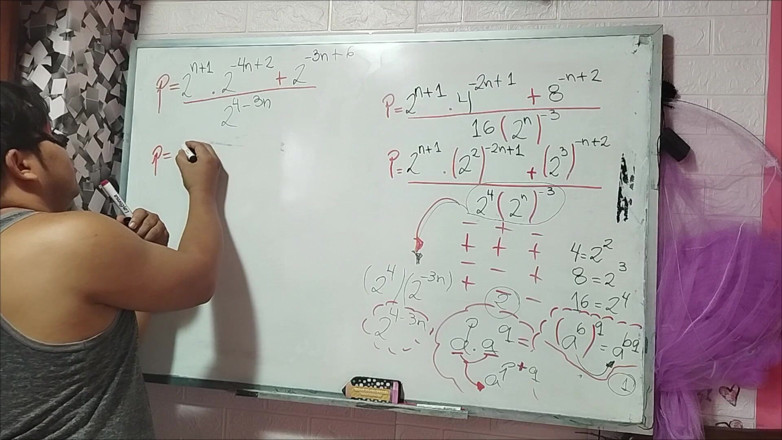 P = (2^{n+1} · 2^{-4n+2} + 2^{-3n+6}) / 2^{4-3n}
P =
P = (2^{n+1} · 4^{-2n+1} + 8^{-n+2}) / (16(2^n)^{-3})
P = (2^{n+1} · (2^2)^{-2n+1} + (2^3)^{-n+2}) / (2^4(2^n)^{-3})
− + −
+ + +
− − +
+ −
4=2^2
8=2^3
16=2^4
(2^4)(2^{-3n})
2^{4-3n}
2
a^p · a^q =
a^{p+q}
(a^b)^q = a^{bq}
1